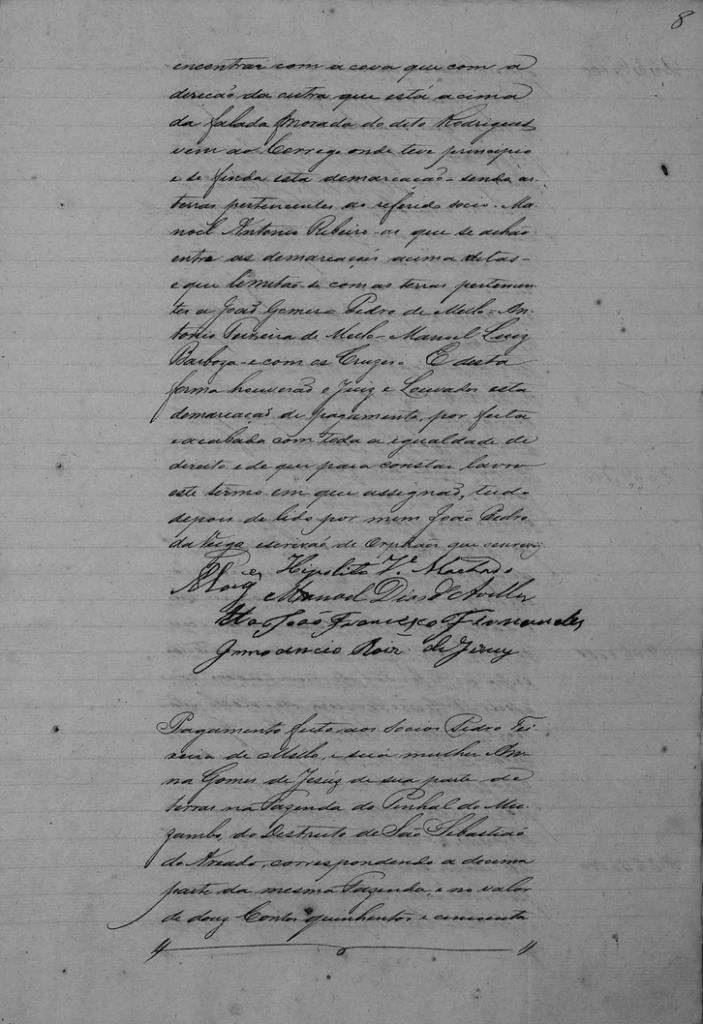 8
encontrar com a cova que com a
direcão da outra que está acima
da falada morada do dito Rodrigues
vem ao Corrego onde teve principio
e se finda esta demarcação - sendo as
terras pertencentes ao referido socio - Ma-
noel Antonio Ribeiro - as que se achão
entre as demarcações acima ditas -
e que limitão-se com as terras pertencen-
tes a João Gomes - Pedro de Mello - An-
tonio Teixeira de Mello - Manoel Luiz
Barboza - e com os Cruzes - E desta
forma houverão o Juiz e Louvados esta
demarcação de pagamento, por feita
e acabada com toda a igualdade de
direito e de que para constar lavro
este termo em que assignão, tudo
depois de lido por mim João Pedro
da Veiga, escrivão de Orphãos que escrevy
Hipolito Machado
Manoel Dias d'Avellar
João Francisco Fernandes
Innocencio Roiz de
Pagamento feito aos Socios Pedro Tei-
xeira de Mello, e sua mulher An-
na Gomes de Jesús de sua parte de
terras na Fazenda do Pinhal do Mu-
zambo, do Destricto de São Sebastião
do Areado, correspondendo a decima
parte da mesma Fazenda, e no valor
de douz Contos quinhentos e cincoenta